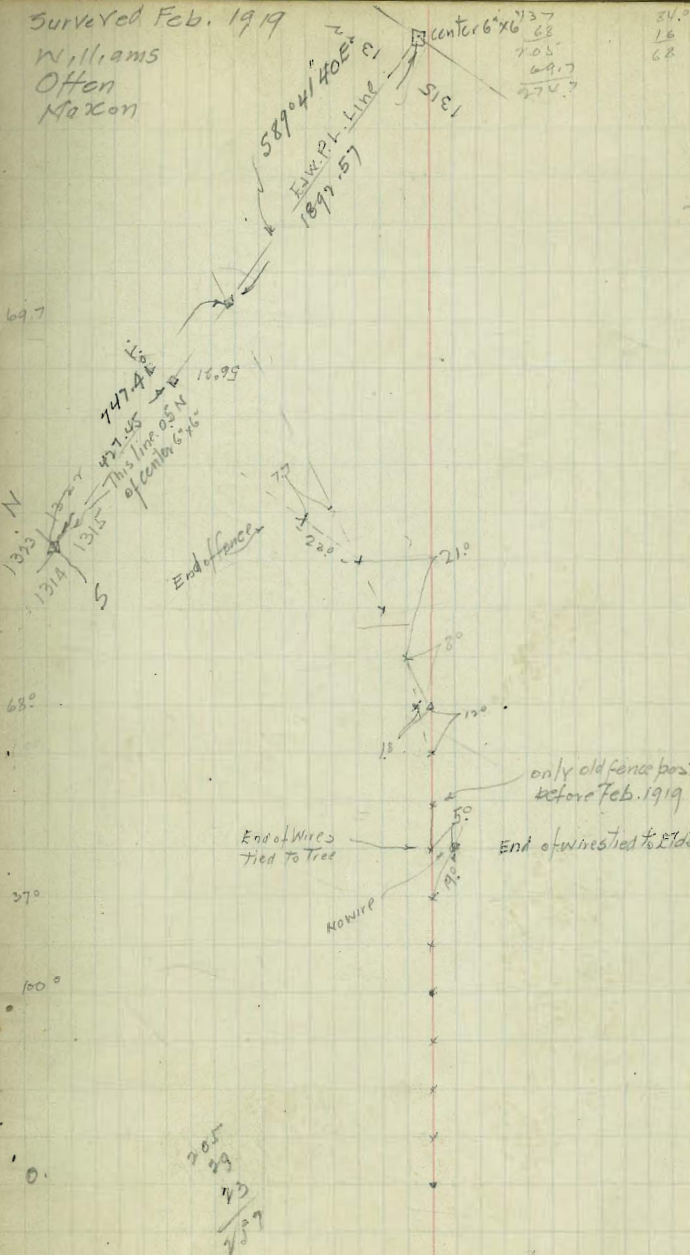 Surveyed Feb. 1919
Williams
Offen
Maxon
center 6"x6"
137
68
205
69.7
274.7
84.0
16
68
S89°41'40"E
E.J.W.P.L. Line
1897.57
1315
69.7
747.42
427.45
This line 0.5 N
of center 6"x6"
N
1323
1322
1315
1314
S
7.7
22.0
End of fence
21.0
8.0
68.0
12.0
1.8
only old fence post
before Feb. 1919
5.0
End of Wires
tied to Tree
End of wires tied to Elde
19.0
No wire
37.0
100.0
0.
205
29